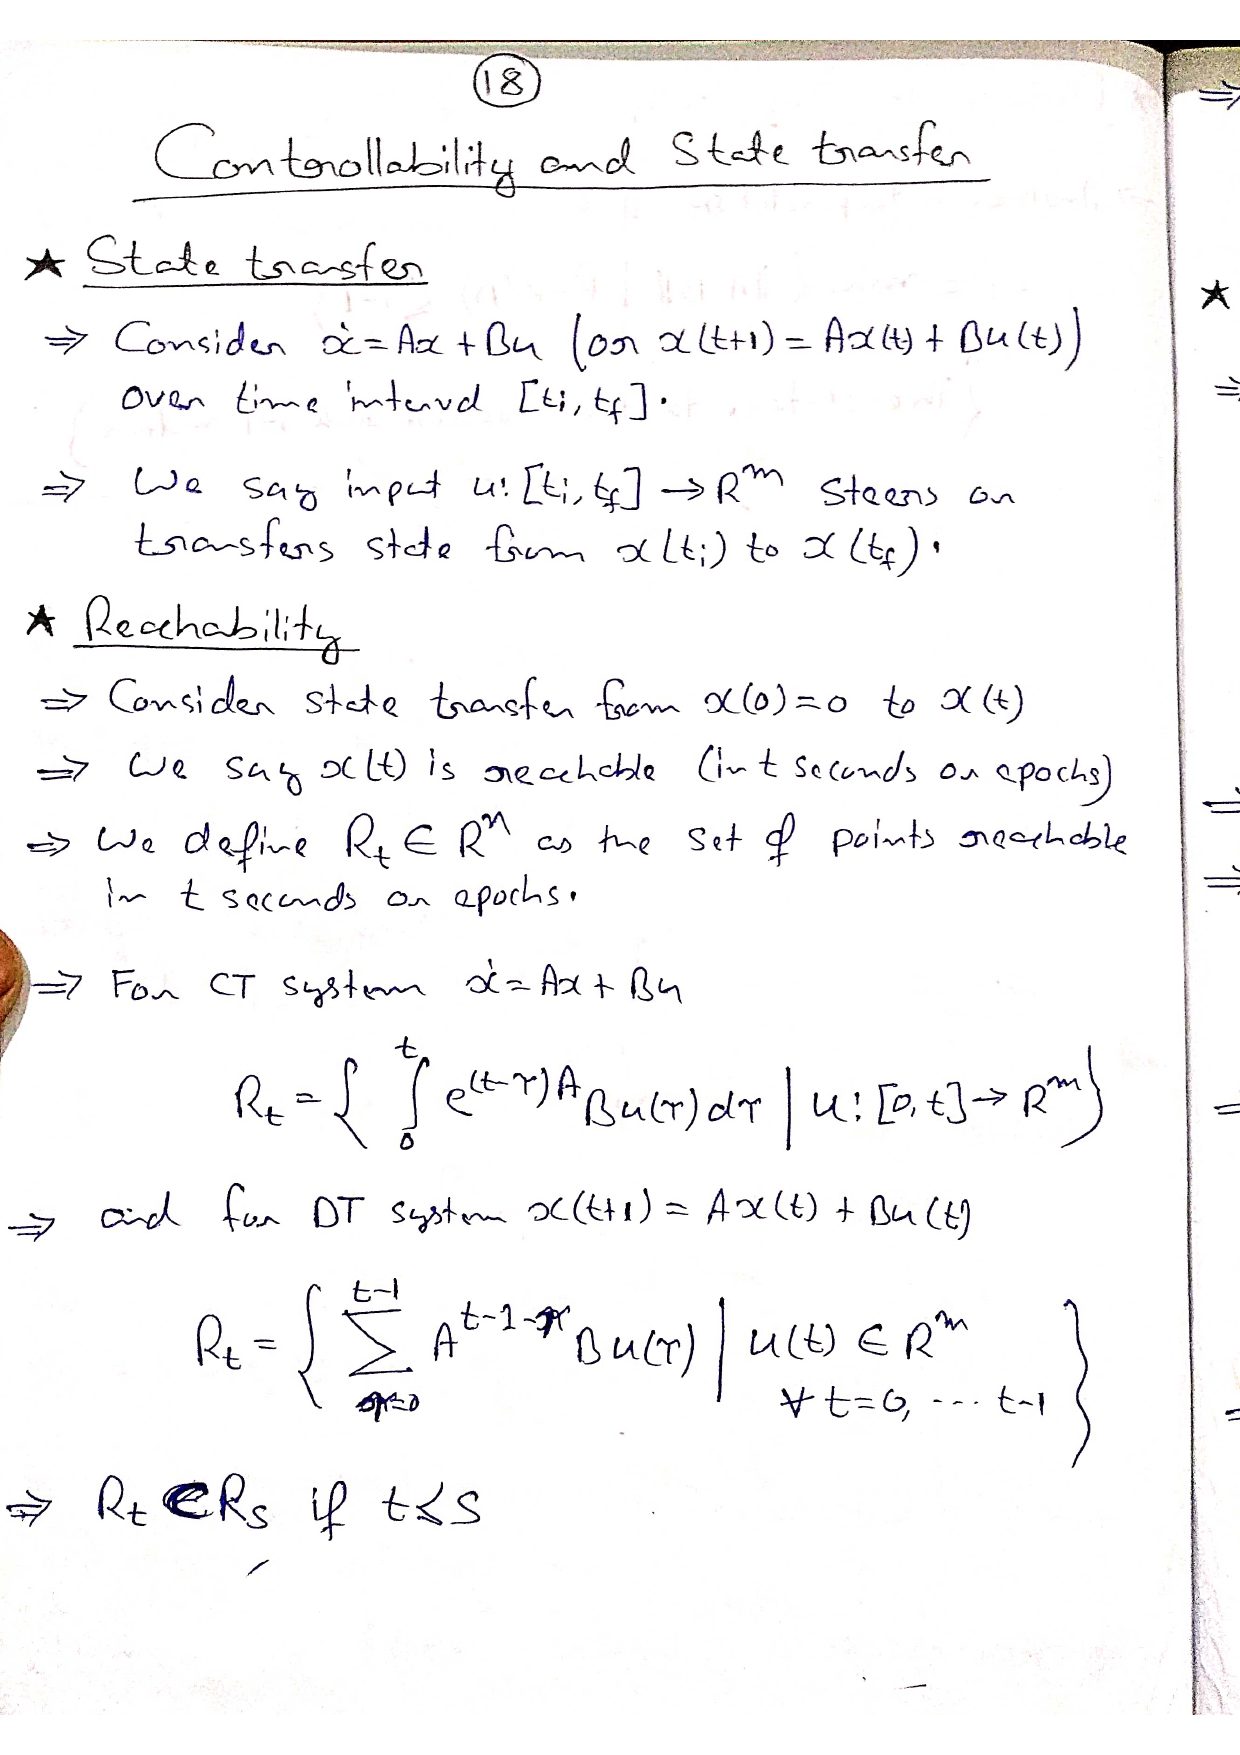 18
Controllability and State transfer
★ State transfer
⇒ Consider ẋ = Ax + Bu (or x(t+1) = Ax(t) + Bu(t))
over time interval [ti, tf].
⇒ We say input u: [ti, tf] → R^m steers or
transfers state from x(ti) to x(tf).
★ Reachability
⇒ Consider state transfer from x(0)=0 to x(t)
⇒ We say x(t) is reachable (in t seconds or epochs)
⇒ We define R_t ∈ R^n as the set of points reachable
in t seconds or epochs.
⇒ For CT system ẋ = Ax + Bu
R_t = { ∫_0^t e^{(t-τ)A} Bu(τ) dτ | u: [0,t] → R^m }
⇒ and for DT system x(t+1) = Ax(t) + Bu(t)
R_t = { Σ_{τ=0}^{t-1} A^{t-1-τ} Bu(τ) | u(t) ∈ R^m
∀ t=0, ... t-1 }
⇒ R_t ⊆ R_s if t ≤ s